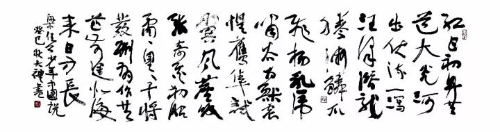 红日初升其
道大光河
出伏流一泻
汪洋潜龙
腾渊鳞爪
飞扬乳虎
啸谷百兽震
惶鹰隼试
翼风尘吸
张奇花初胎
矞矞皇皇干将
发硎有作其
芒前途似海
来日方长
梁任公少年中国说
癸巳